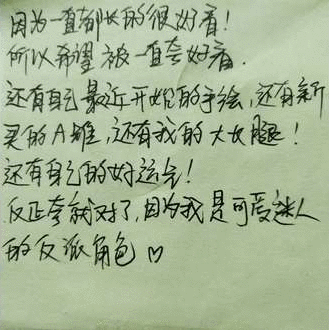 因为一直都长的很好看！
所以希望被一直夸好看.
还有自己最近开始的手绘,还有新
买的A锥,还有我的大长腿！
还有自己的好运气！
反正夸就对了,因为我是可爱迷人
的反派角色♡